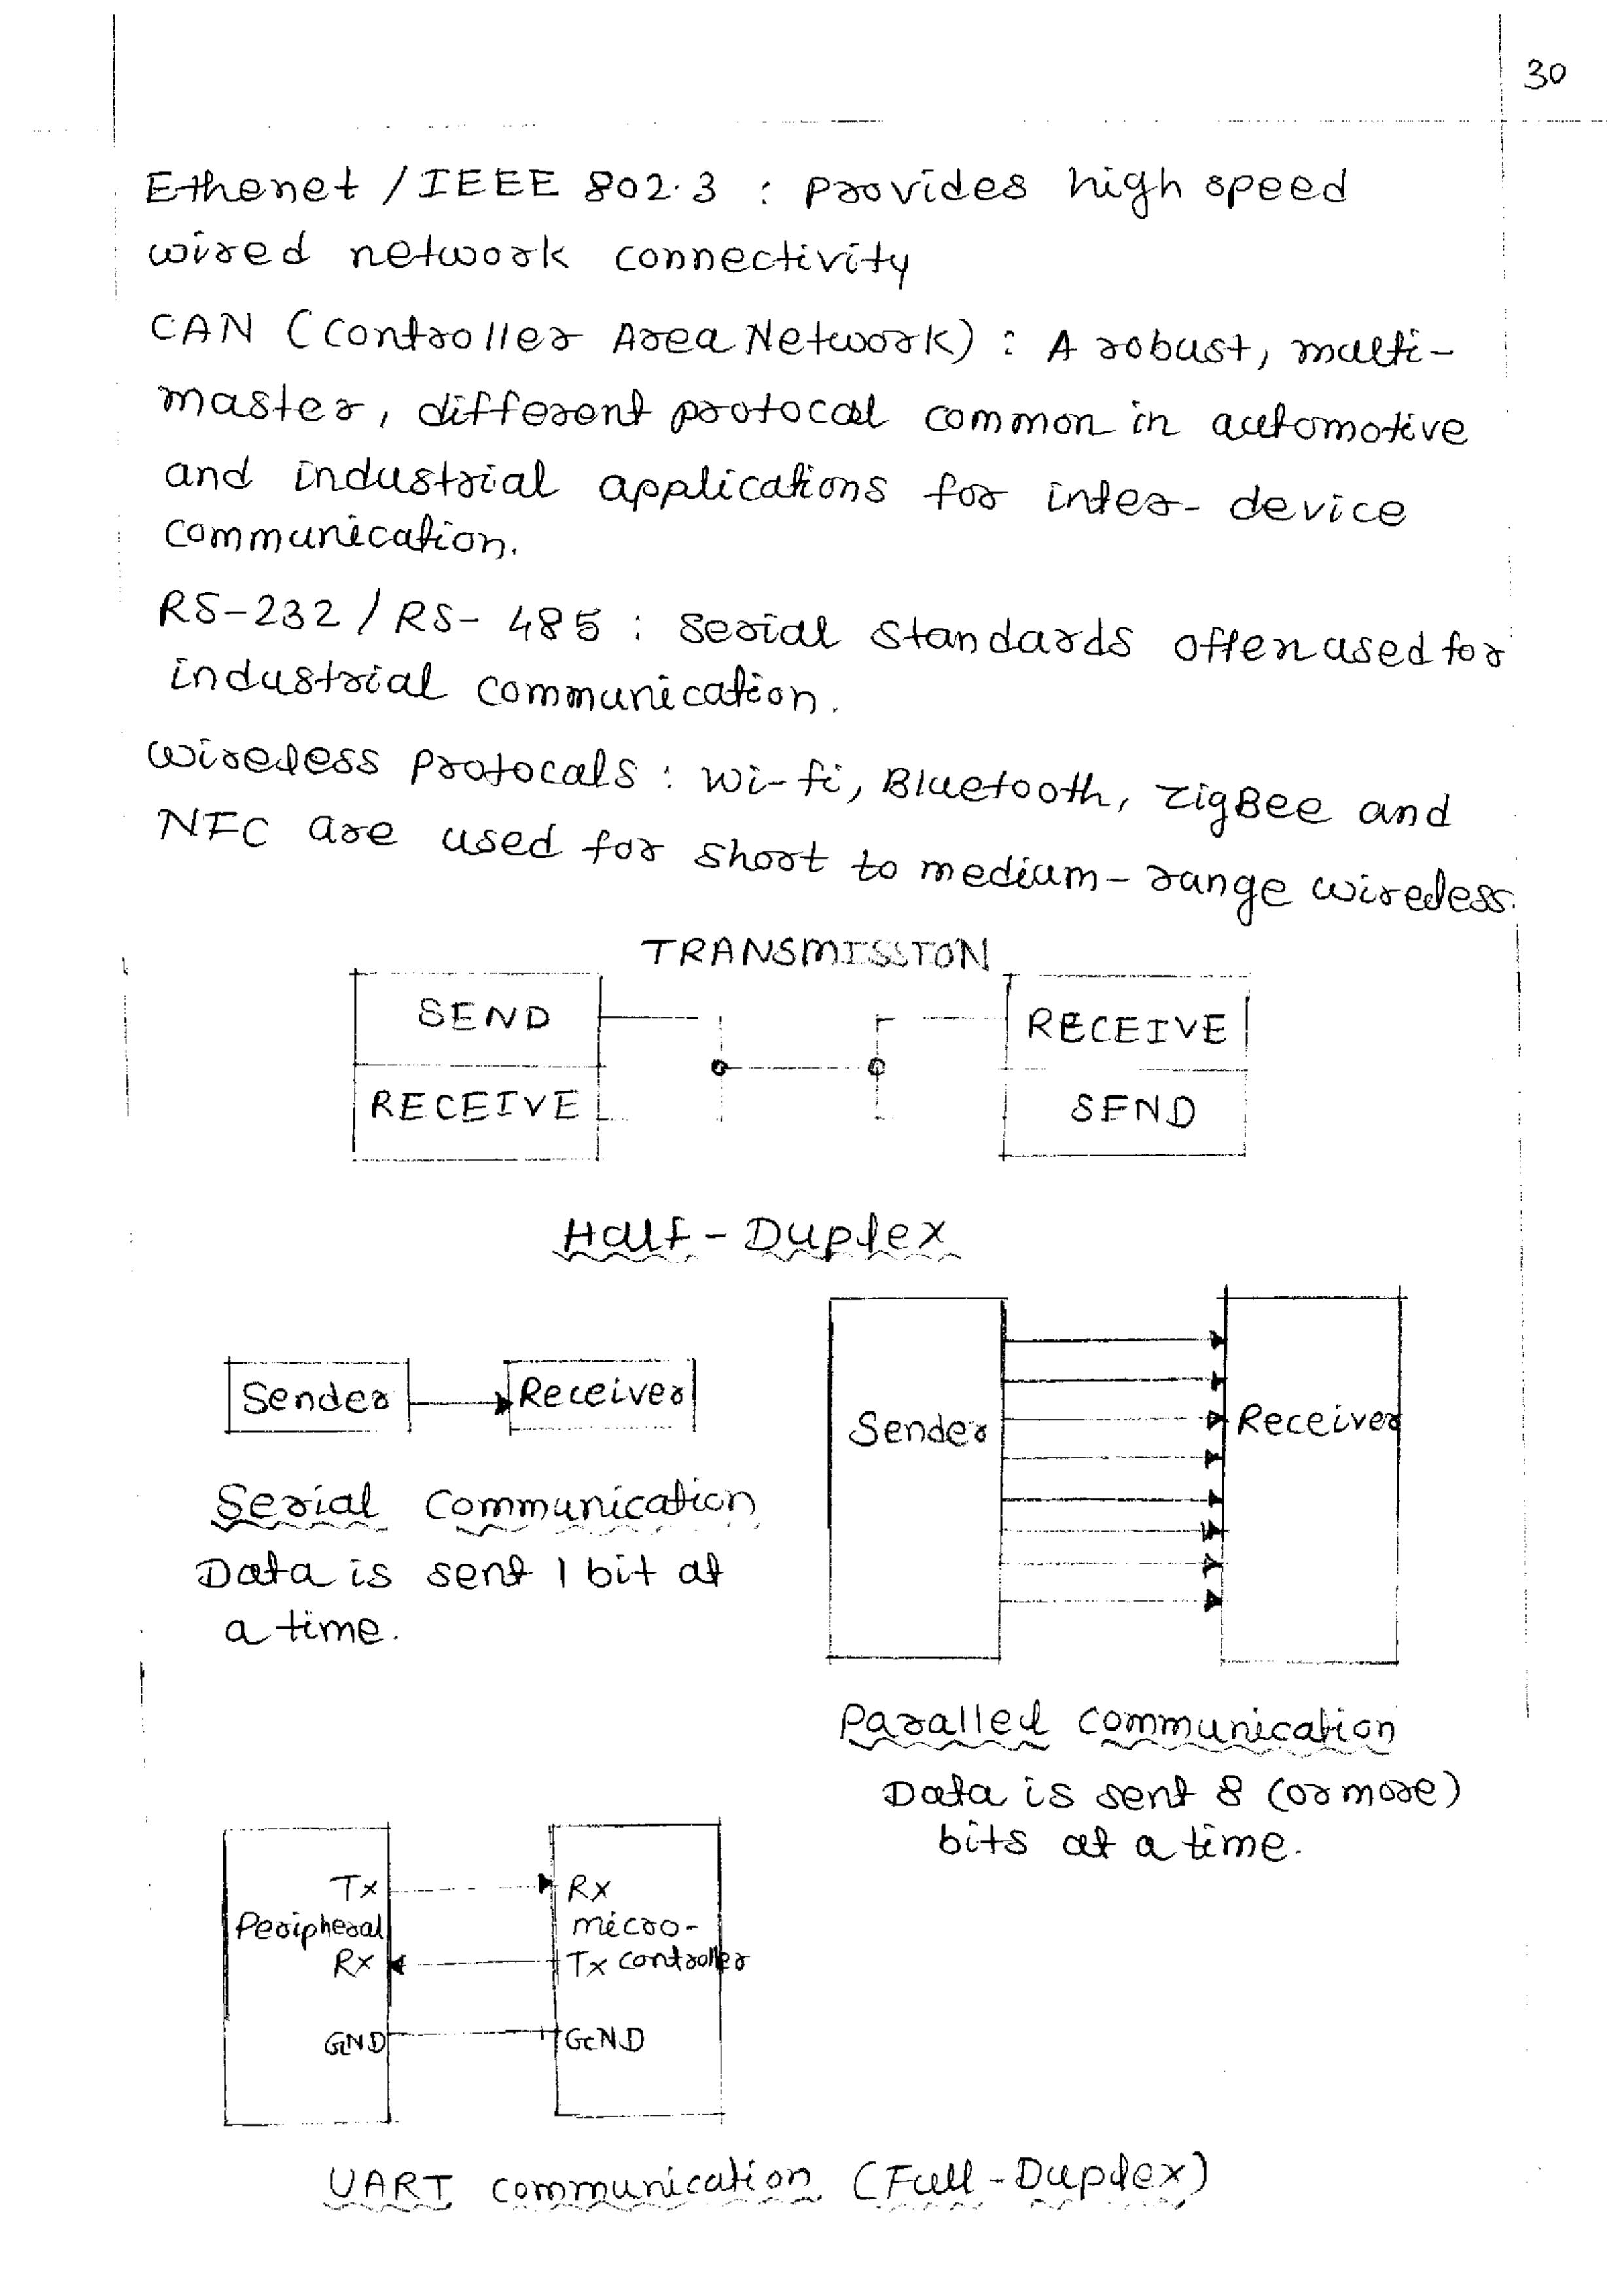 30
Ethenet / IEEE 802.3 : provides high speed
wired network connectivity
CAN (Controller Area Network) : A robust, multi-
master, different protocal common in automotive
and industrial applications for inter- device
communication.
RS-232 / RS- 485 : Serial Standards often used for
industrial communication.
wireless Protocals : Wi-fi, Bluetooth, ZigBee and
NFC are used for short to medium-range wireless.
TRANSMISSION
SEND
RECEIVE
RECEIVE
SEND
Half-Duplex
Sender
Receiver
Sender
Receiver
Serial Communication
Data is sent 1 bit at
a time.
Paralled Communication
Data is sent 8 (or more)
bits at a time.
Tx
Peripheral
Rx
GND
Rx
micro-
Tx controller
GND
UART communication (Full-Duplex)